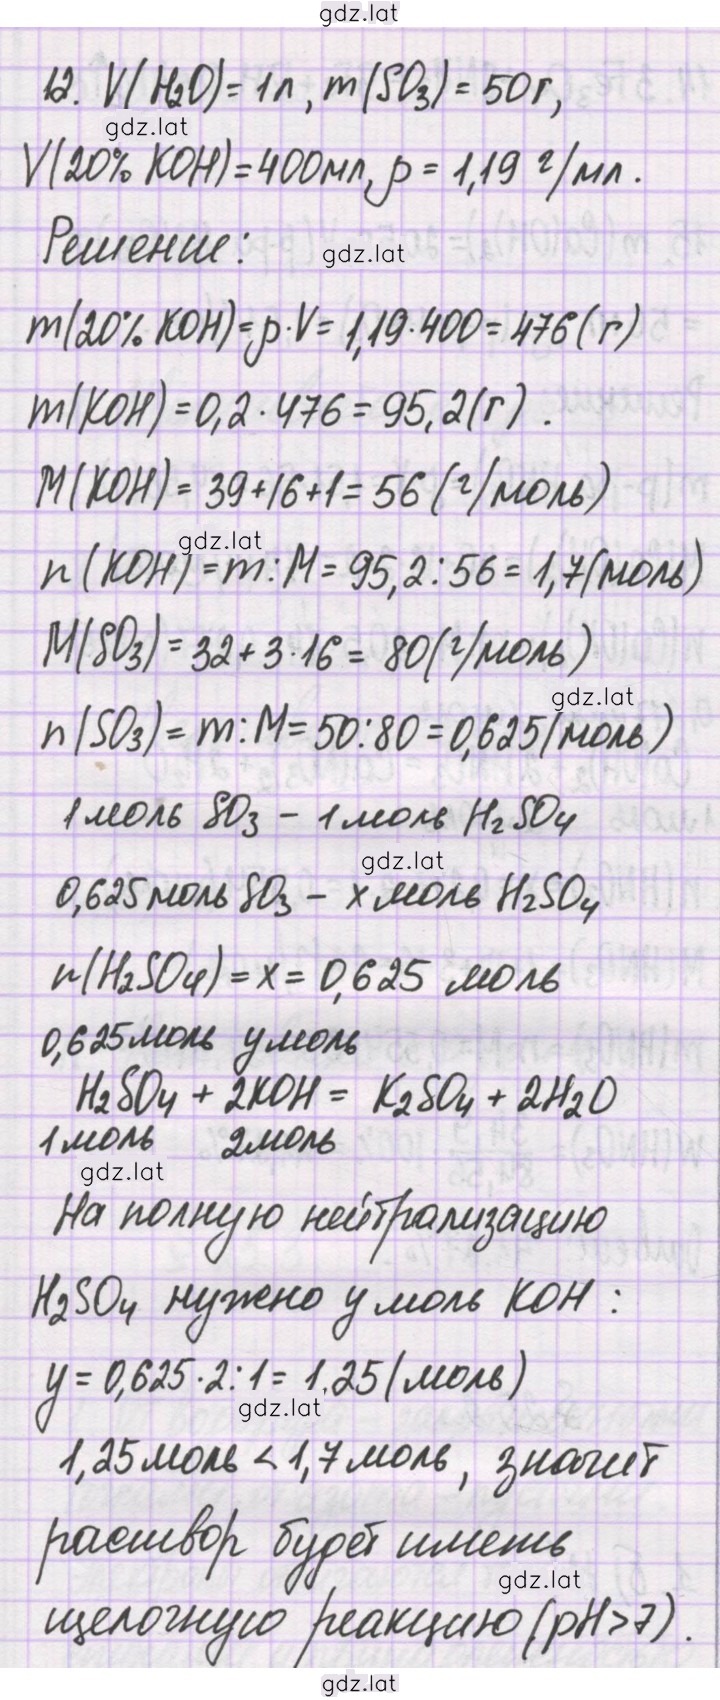 gdz.lat
12. V(H₂O) = 1л, m(SO₃) = 50г,
gdz.lat
V(20% KOH) = 400мл, ρ = 1,19 г/мл.
Решение:
gdz.lat
m(20% KOH) = ρ·V = 1,19·400 = 476(г)
m(KOH) = 0,2·476 = 95,2(г).
M(KOH) = 39+16+1 = 56 (г/моль)
gdz.lat
n(KOH) = m:M = 95,2:56 = 1,7(моль)
M(SO₃) = 32+3·16 = 80(г/моль)
gdz.lat
n(SO₃) = m:M = 50:80 = 0,625(моль)
1моль SO₃ – 1моль H₂SO₄
gdz.lat
0,625моль SO₃ – x моль H₂SO₄
n(H₂SO₄) = x = 0,625 моль
0,625моль y моль
H₂SO₄ + 2KOH = K₂SO₄ + 2H₂O
1моль 2моль
gdz.lat
На полную нейтрализацию
H₂SO₄ нужно y моль KOH:
y = 0,625·2:1 = 1,25(моль)
gdz.lat
1,25моль < 1,7моль, значит
раствор будет иметь
gdz.lat
щелочную реакцию (pH>7).
gdz.lat